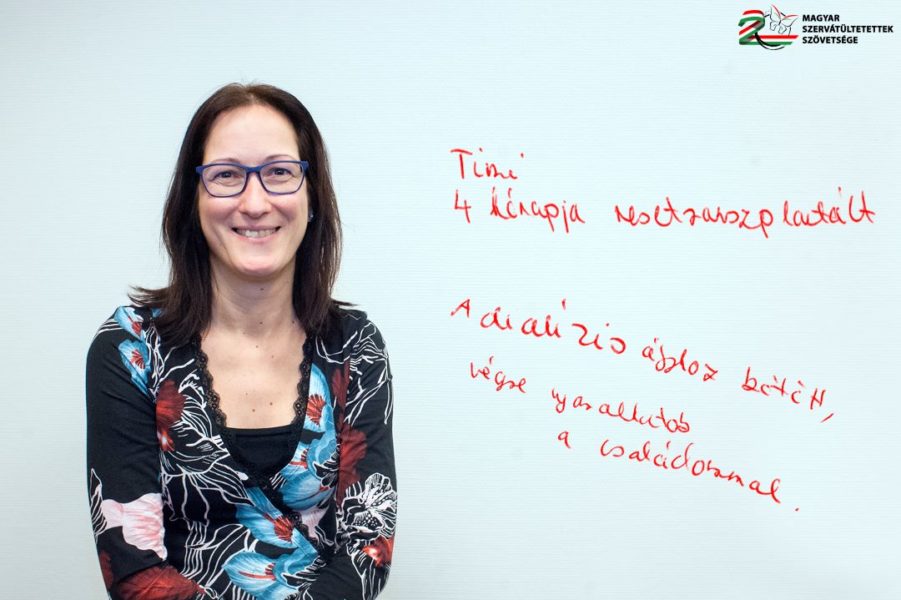 MAGYAR
SZERVÁTÜLTETETTEK
SZÖVETSÉGE
Timi
4 hónapja vesetranszplantált
A dialízis ágyhoz kötött,
végre nyaralhatok
a családommal.